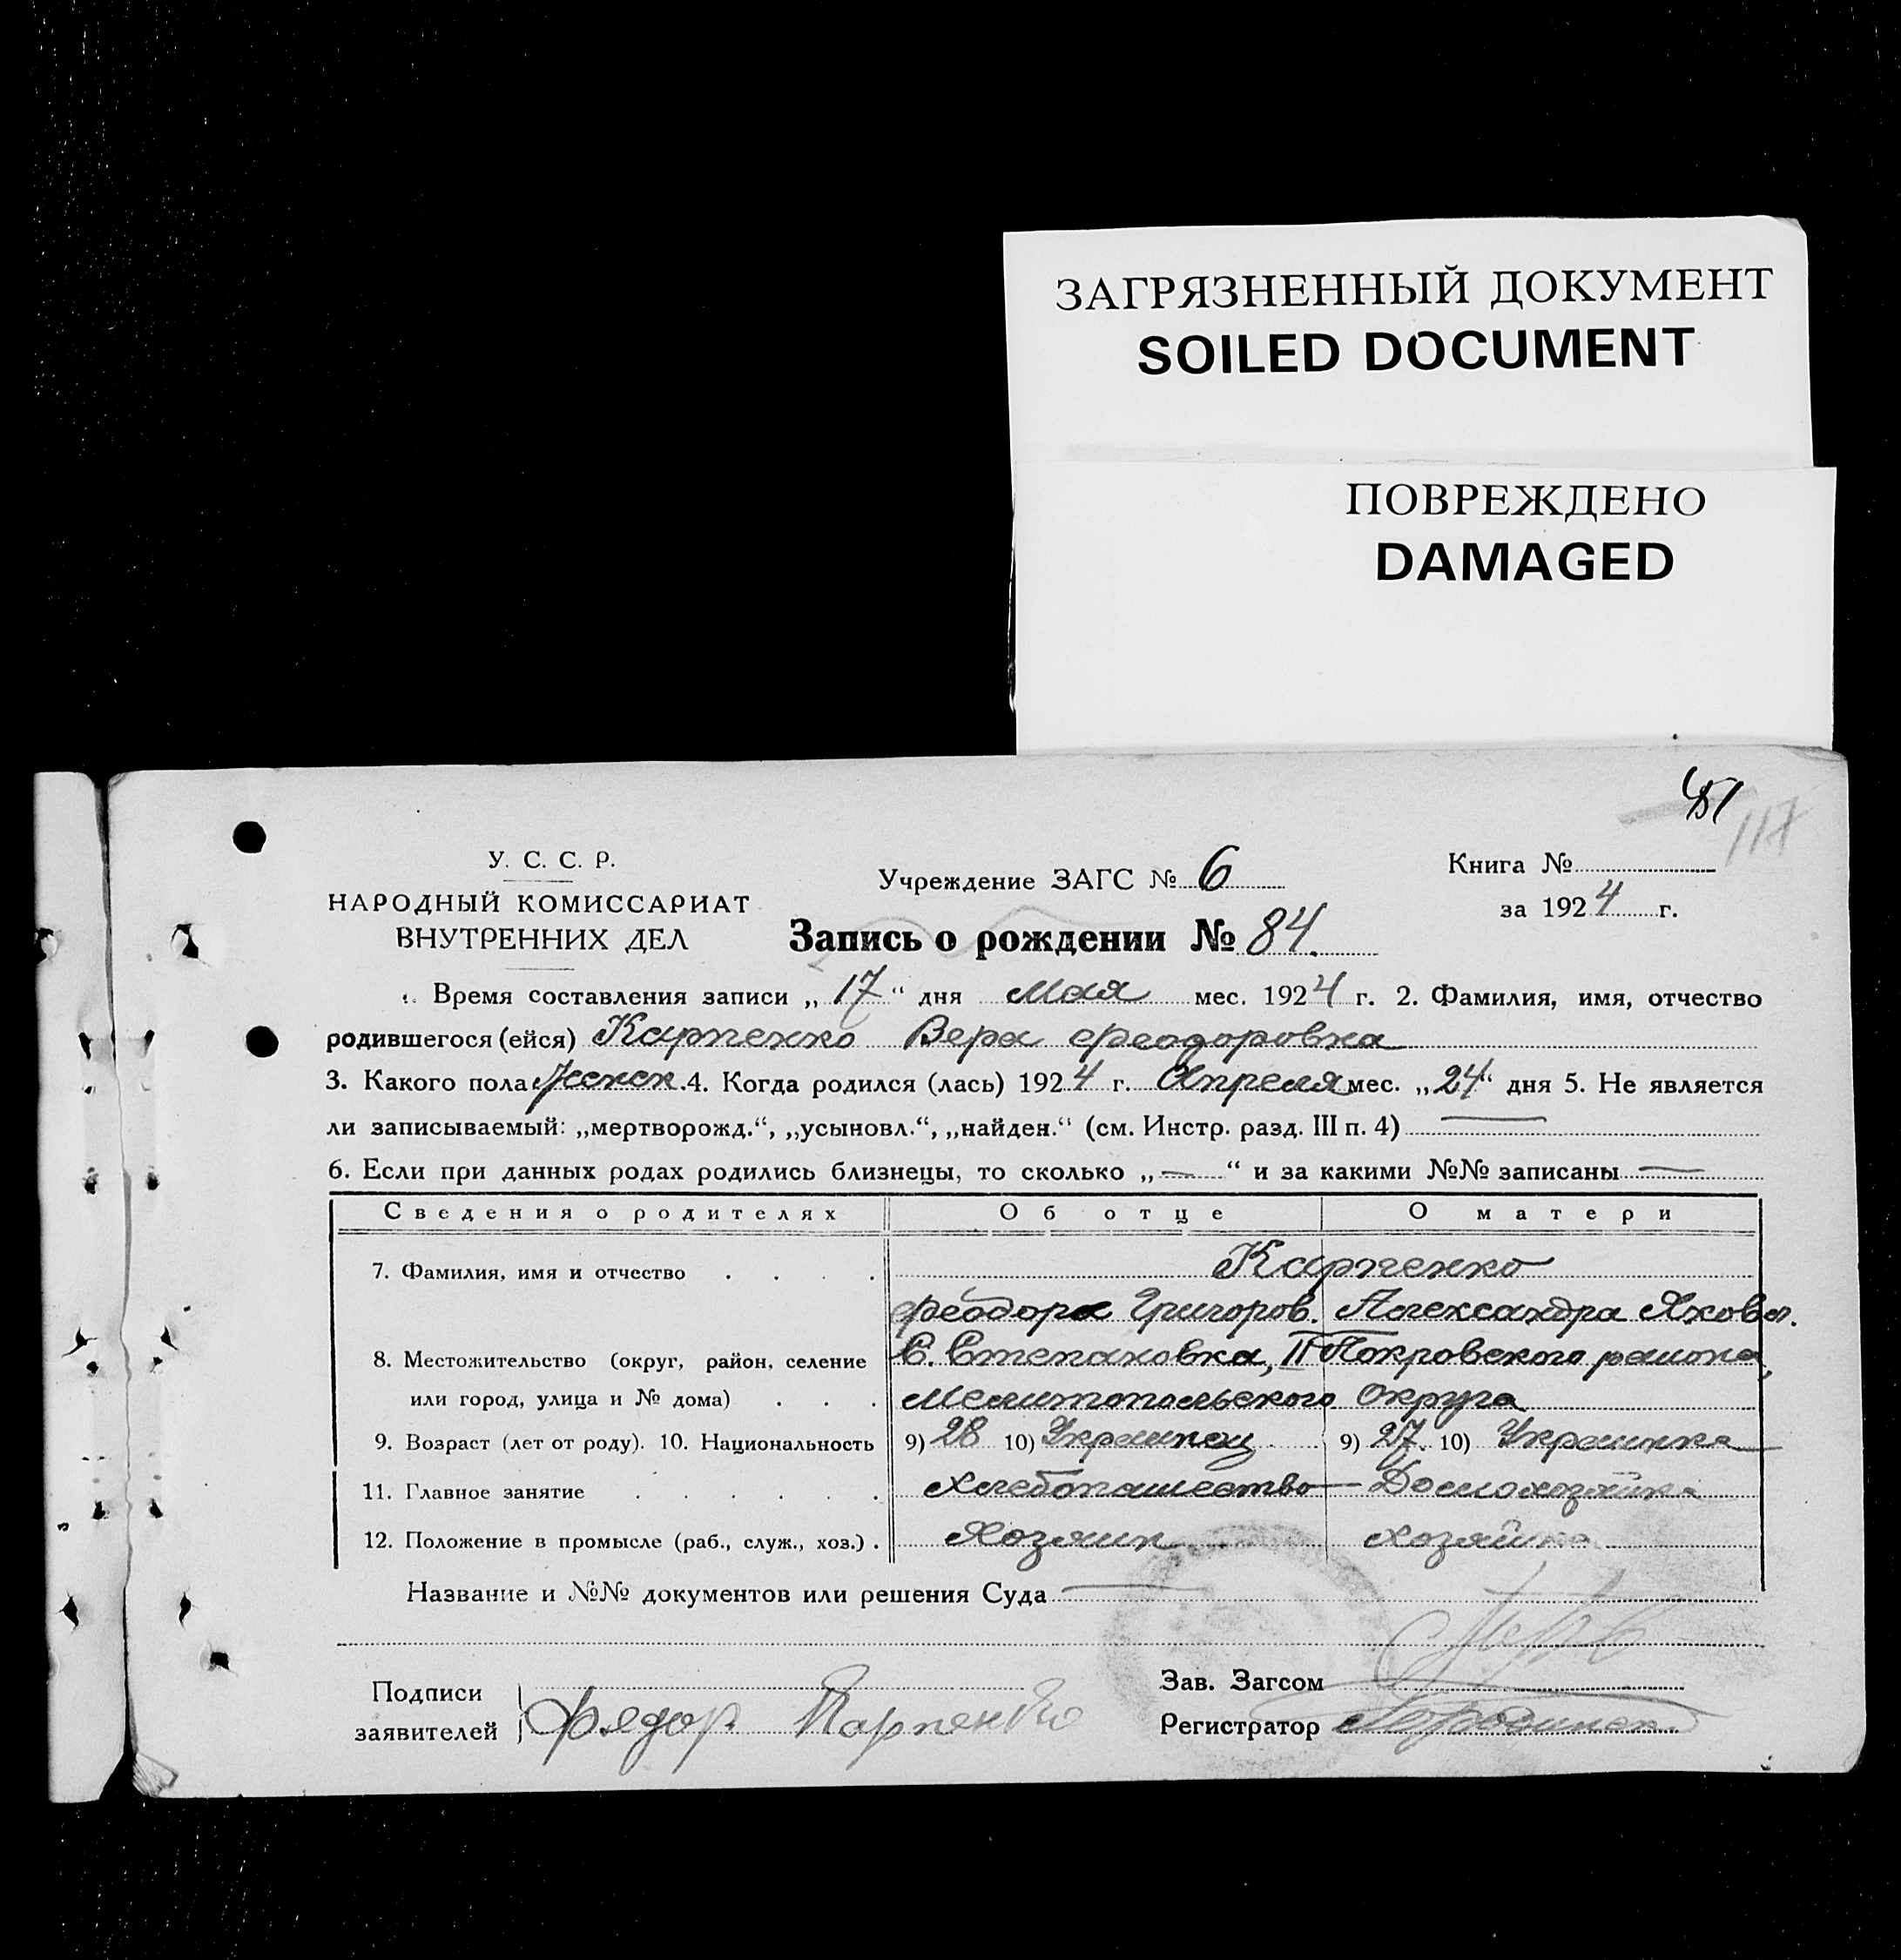 ЗАГРЯЗНЕННЫЙ ДОКУМЕНТ
SOILED DOCUMENT
ПОВРЕЖДЕНО
DAMAGED
117
У. С. С. Р.
НАРОДНЫЙ КОМИССАРИАТ
ВНУТРЕННИХ ДЕЛ
Учреждение ЗАГС № 6
Книга №
за 1924 г.
Запись о рождении № 84.
Время составления записи „17“ дня Мая мес. 1924 г. 2. Фамилия, имя, отчество
родившегося (ейся) Карпенко Вера Феодоровна
3. Какого пола Женск. 4. Когда родился (лась) 1924 г. Апреля мес. „24“ дня 5. Не является
ли записываемый: „мертворожд.“, „усыновл.“, „найден.“ (см. Инстр. разд. III п. 4) —
6. Если при данных родах родились близнецы, то сколько „—“ и за какими №№ записаны —
Сведения о родителях Об отце О матери
7. Фамилия, имя и отчество . . . . Карпенко
Феодора Григоров. Александра Яховл.
8. Местожительство (округ, район, селение С. Степановка, II Покровского района,
или город, улица и № дома) . . . Мелитопольского Округа
9. Возраст (лет от роду). 10. Национальность 9) 28 10) Украинец 9) 27. 10) Украинка
11. Главное занятие . . . . . . Хлебопашество — Домохозяйка
12. Положение в промысле (раб., служ., хоз.) . Хозяин хозяйка
Название и №№ документов или решения Суда —
Подписи
заявителей
Фядор Карпенко
Зав. Загсом
Регистратор